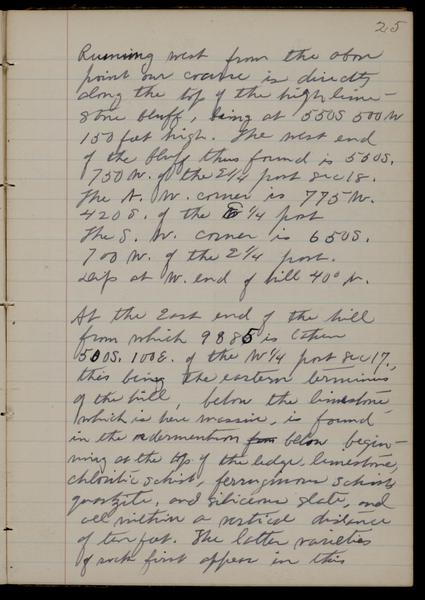 25
Running west from the above
point our course is directly
along the top of the high lime-
stone bluff, being at 550S 500W
150 feet high. The west end
of the bluff thus found is 550S.
750 W. of the E 1/4 post Sec 18.
The N. W. corner is 775 W.
420 S. of the E 1/4 post
The S. W. corner is 650S.
700 W. of the E 1/4 post.
Dip at W. end of hill 40° N.
At the East end of the hill
from which 9885 is taken
500S. 100E. of the W 1/4 post Sec 17.,
this being the eastern terminus
of the hill, below the limestone
which is here massive, is found
in the order mention below begin-
ning at the top of the ledge, limestone,
chloritic schist, ferruginous schist
quartzite, and siliceous slate, and
all within a vertical distance
of ten feet. The latter varieties
of rock first appear in this